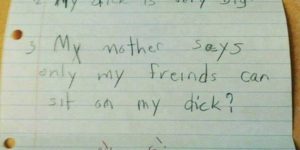 3 My mother says
only my freinds can
sit on my dick?